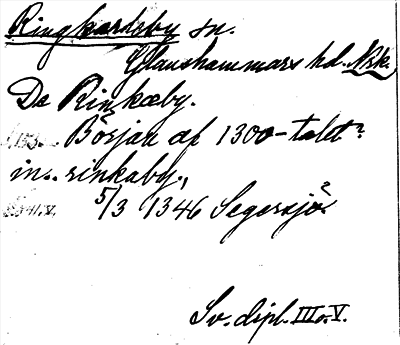 Ringkardsby sn.
Glanshammars hd. Nrk.
De Rinkæby.
Början af 1300-talet?
in.. rinkaby.,
5/3 1346 Segersjö?
Sv. dipl. III o. V.